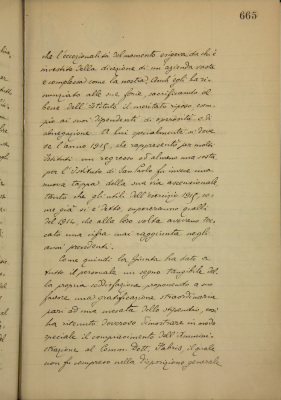 665
che l'eccezionalità del momento esigeva da chi è
investito della direzione di un'azienda vasta
e complessa come la nostra; Anch'egli ha ri-
nunziato alle sue ferie, sacrificando al
bene dell'Istituto il meritato riposo, esem-
pio ai suoi dipendenti di operosità e di
abnegazione. A lui specialmente si deve
se l'anno 1915, che rappresentò per molti
Istituti un regresso od almeno una sosta,
per l'Istituto di San Paolo fu invece una
nuova tappa della sua via ascensionale
tanto che gli utili dell'esercizio 1915, co-
me già si è detto, supereranno quelli
del 1914, che alla loro volta avevano toc-
cato una cifra mai raggiunta negli
anni precedenti.
Come quindi la Giunta ha dato a
tutto il personale un segno tangibile del-
la propria soddisfazione proponendo a suo
favore una gratificazione straordinaria
pari ad una mesata dello stipendio, così
ha ritenuto doveroso dimostrare in modo
speciale il compiacimento dell'Ammini-
strazione al Comm. Dott. Fabris, il quale
non fu compreso nella disposizione generale